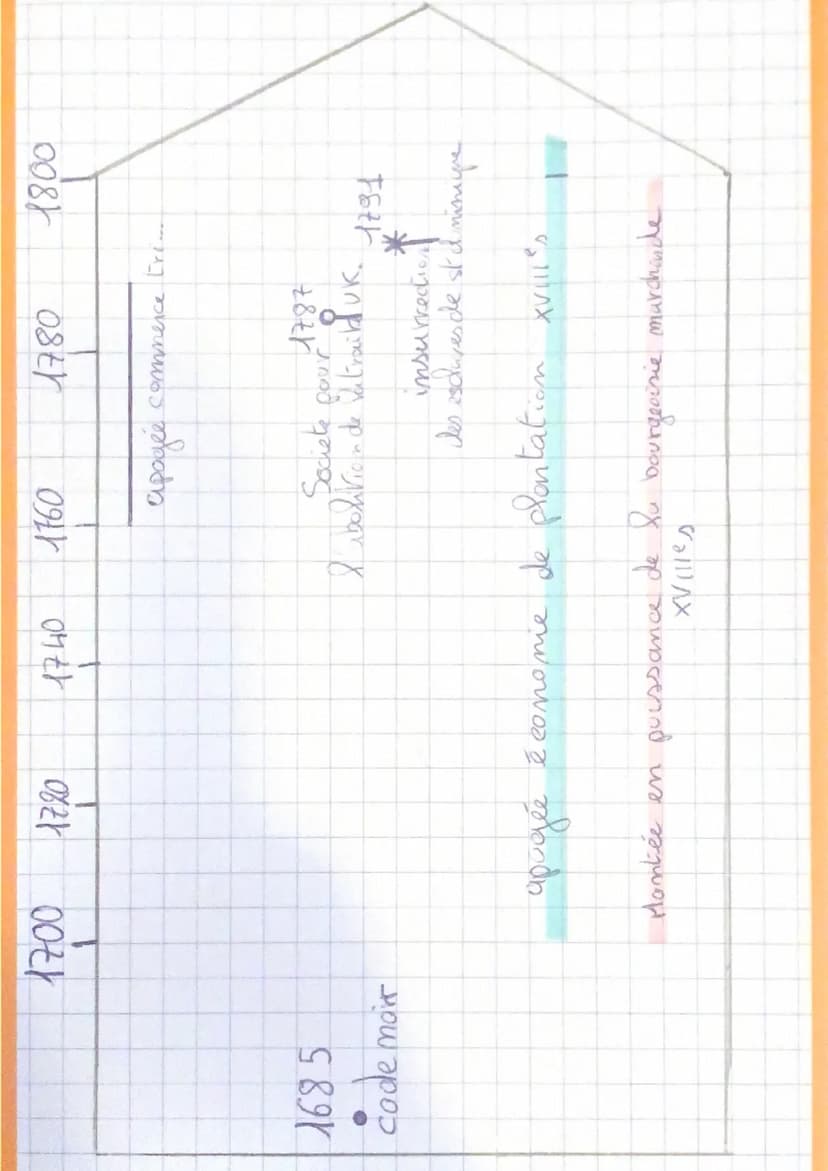 1700 1720 1740 1760 1780 1800
apogée commerce tri...
1685
code noir
1787
Societe pour
l'abolition de la traite UK.
1791
insurrection
des esclaves de st dominique
apogée économie de plantation XVIIIes
Montée en puissance de la bourgeoisie marchande
XVIIIes